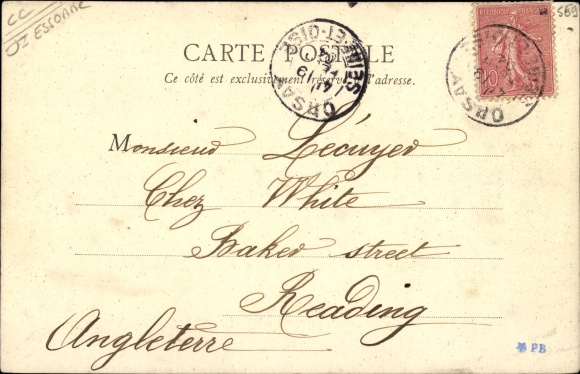 CC
JZ ESSONNE
569
CARTE POSTALE
Ce côté est exclusivement réservé à l'adresse.
ORSAY
SEINE-ET-OISE
ORSAY
10
Monsieur Lécuyer
Chez White
Baker street
Reading
Angleterre
PB